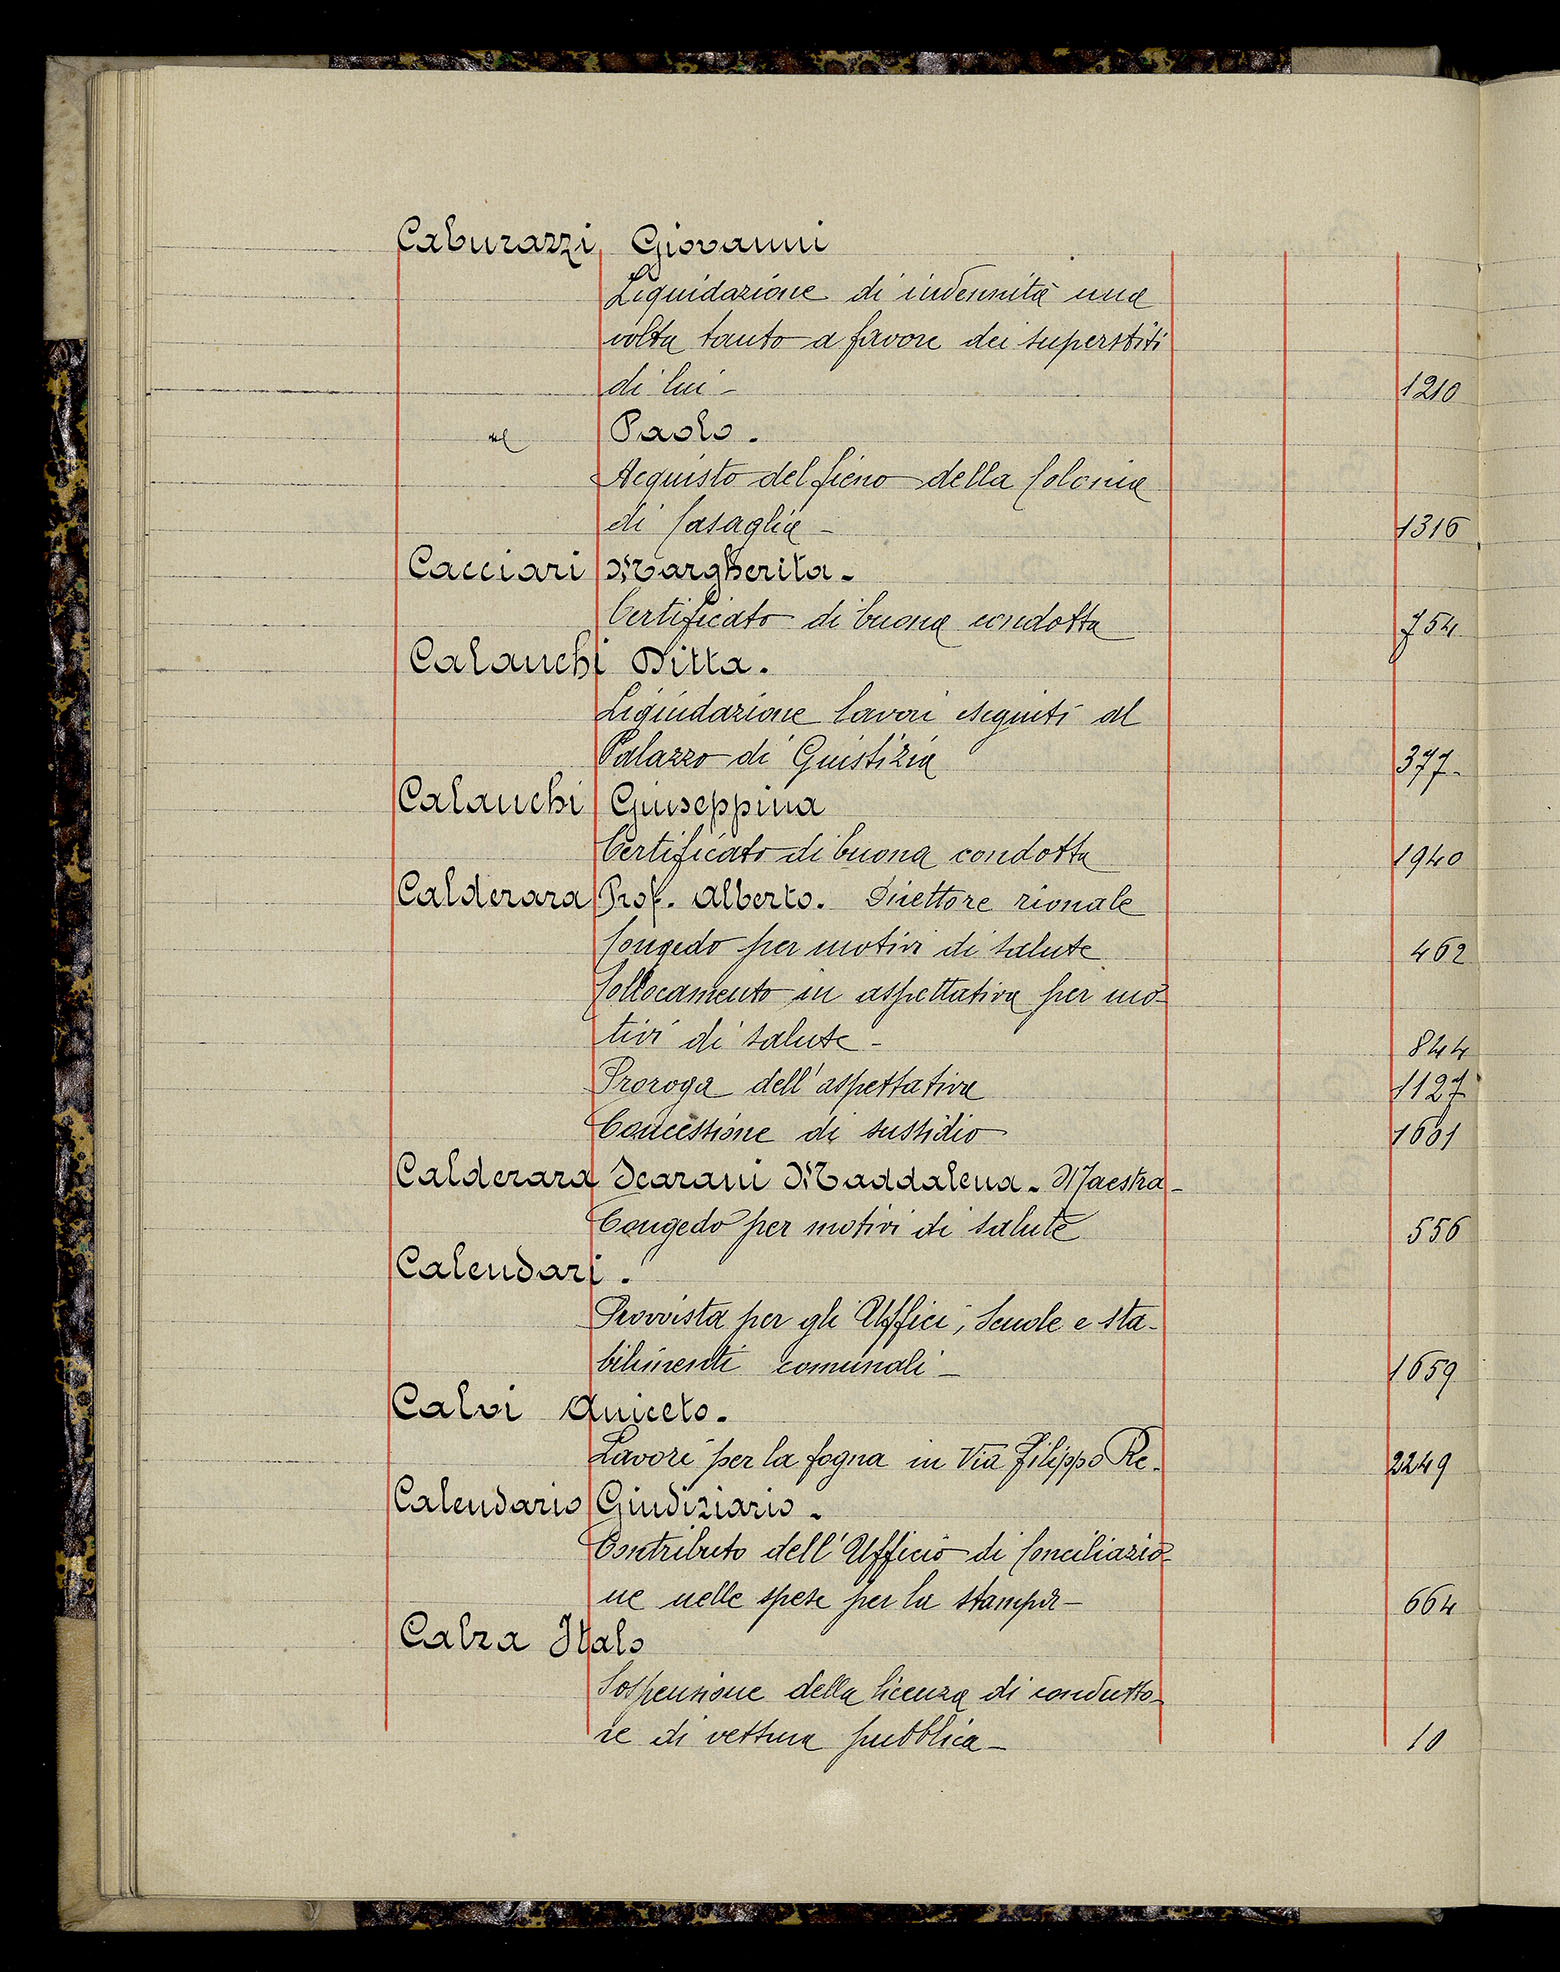 Caburazzi Giovanni
Liquidazione di indennità una
volta tanto a favore dei superstiti
di lui - 1210
Paolo.
Acquisto del fieno della Colonia
di Casaglia - 1316
Cacciari Margherita.
Certificato di buona condotta 754
Calanchi Ditta.
Liquidazione lavori eseguiti al
Palazzo di Giustizia 377.
Calanchi Giuseppina
Certificato di buona condotta 1940
Calderara Prof. Alberto. Direttore rionale
Congedo per motivi di salute 462
Collocamento in aspettativa per mo-
tivi di salute - 844
Proroga dell'aspettativa 1127
Concessione di sussidio 1601
Calderara Scarani Maddalena. Maestra -
Congedo per motivi di salute 556
Calendari.
Provvista per gli Uffici, Scuole e sta-
bilimenti comunali - 1659
Calvi Aniceto.
Lavori per la fogna in Via Filippo Re. 2249
Calendario Giudiziario.
Contributo dell'Ufficio di Conciliazio-
ne nelle spese per la stampa - 664
Calza Italo
Sospensione della licenza di condutto-
re di vettura pubblica - 10